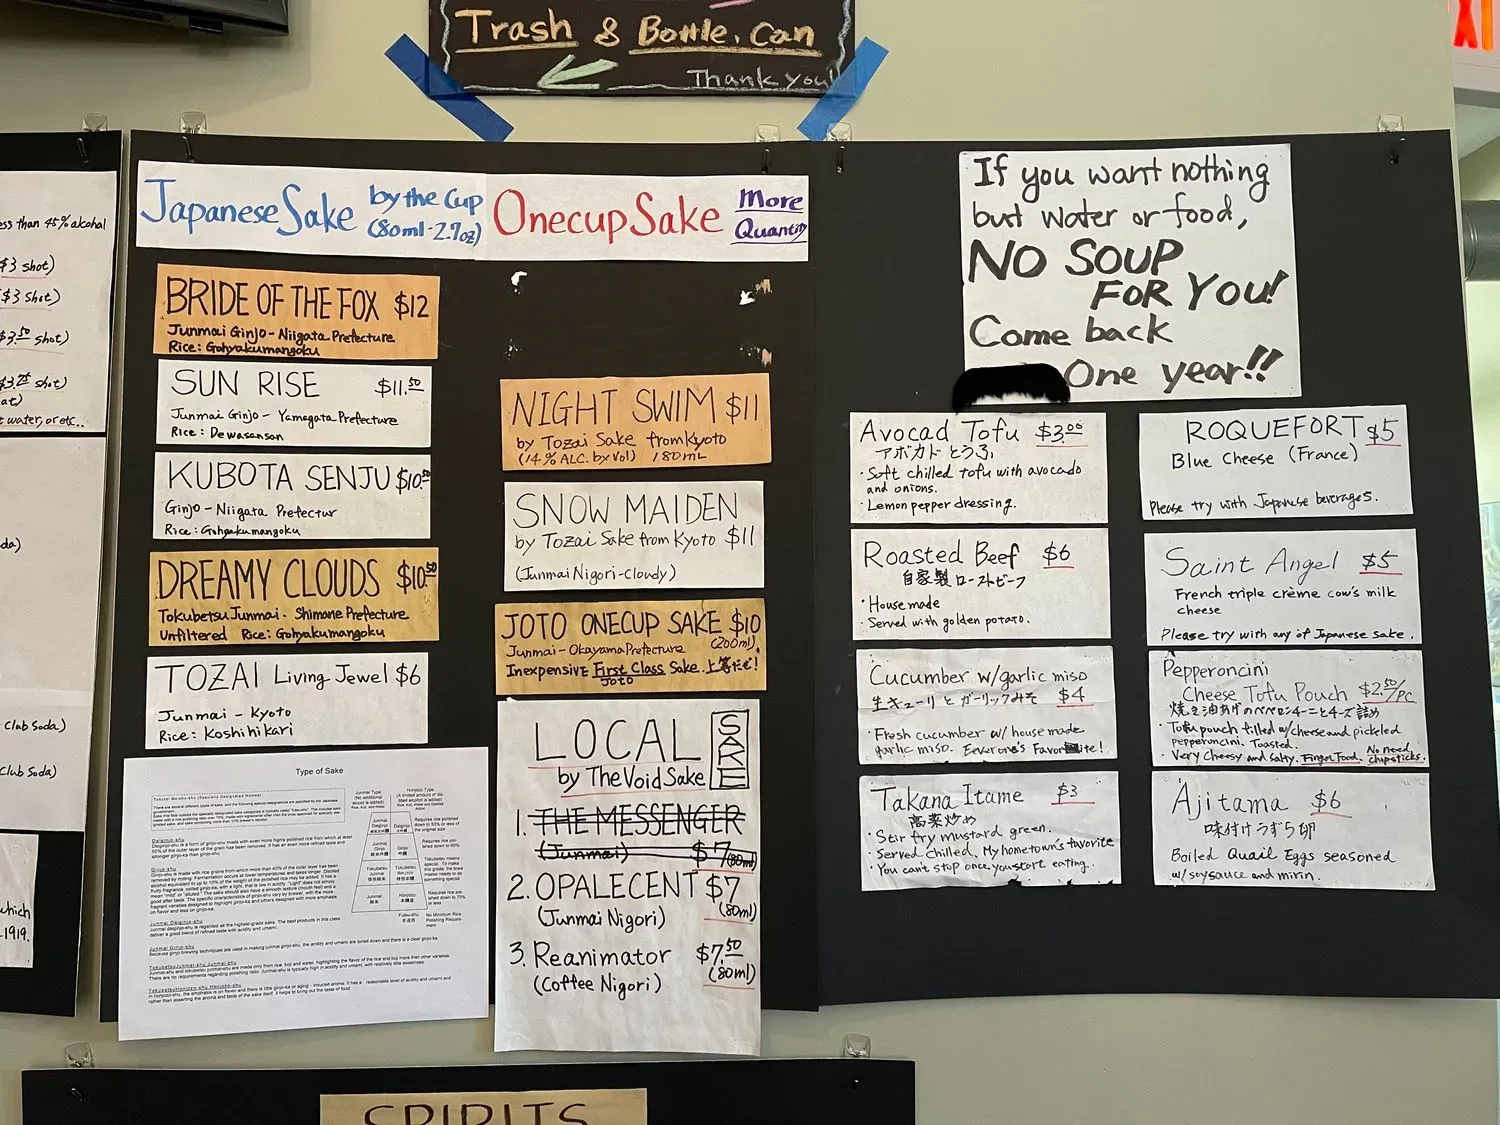 Trash & Bottle. Can
Thank you!
EXI
ess than 45% alcohol
$3 shot)
$3 shot)
$3.50 shot)
$3.75 shot)
at)
t water, or etc..
da)
Club Soda)
Club Soda)
which
1919.
Japanese Sake by the Cup
(80ml-2.7oz)
BRIDE OF THE FOX $12
Junmai Ginjo - Niigata Prefecture
Rice: Gohyakumangoku
SUN RISE $11.50
Junmai Ginjo - Yamagata Prefecture
Rice: Dewasansan
KUBOTA SENJU $10.50
Ginjo - Niigata Prefectur
Rice: Gohyakumangoku
DREAMY CLOUDS $10.50
Tokubetsu Junmai - Shimane Prefecture
Unfiltered Rice: Gohyakumangoku
TOZAI Living Jewel $6
Junmai - Kyoto
Rice: Koshihikari
Type of Sake
Daiginjo-shu
Ginjo-shu
Junmai Daiginjo-shu
Junmai daiginjo-shu is regarded as the highest-grade sake. The best products in this class
deliver a good blend of refined taste with acidity and umami.
Junmai Ginjo-shu
Because ginjo brewing techniques are used in making junmai ginjo-shu, the acidity and umami are toned down and there is a clear ginjo-ka
Onecup Sake More
Quantity
NIGHT SWIM $11
by Tozai Sake from Kyoto
(14% ALC. by Vol) 180mL
SNOW MAIDEN
by Tozai Sake from Kyoto $11
(Junmai Nigori-Cloudy)
JOTO ONECUP SAKE $10
Junmai - Okayama Prefecture (200ml)
Inexpensive First Class Sake. 上等だぜ!
Joto
LOCAL SAKE
by The Void Sake
1. THE MESSENGER
(Junmai) $7 (80ml)
2. OPALECENT $7
(Junmai Nigori) (80ml)
3. Reanimator $7.50
(Coffee Nigori) (80ml)
If you want nothing
but water or food,
NO SOUP
FOR YOU!
Come back
One year!!
Avocad Tofu $3.00
アボカドとうふ
・Soft chilled tofu with avocado
and onions.
・Lemon pepper dressing.
Roasted Beef $6
自家製ローストビーフ
・House made
・Served with golden potato.
Cucumber w/garlic miso
生キューリとガーリックみそ $4
・Fresh cucumber w/ house made
garlic miso. Eeverone's Favorite!
Takana Itame $3
高菜炒め
・Stir fry mustard green.
・Served chilled. My hometown's favorite
・You can't stop once you start eating.
ROQUEFORT $5
Blue Cheese (France)
Please try with Japanese beverages.
Saint Angel $5
French triple crème cow's milk
cheese
Please try with any of Japanese sake.
Pepperoncini
Cheese Tofu Pouch $2.50/PC
焼き油あげのペペロンチーニとチーズ詰め
・Tofu pouch filled w/cheese and pickled
pepperoncini. Toasted.
・Very Cheesy and salty. Finger Food. No need chipsticks.
Ajitama $6
味付けうずら卵
Boiled Quail Eggs seasoned
w/ soysauce and mirin.
SPIRITS